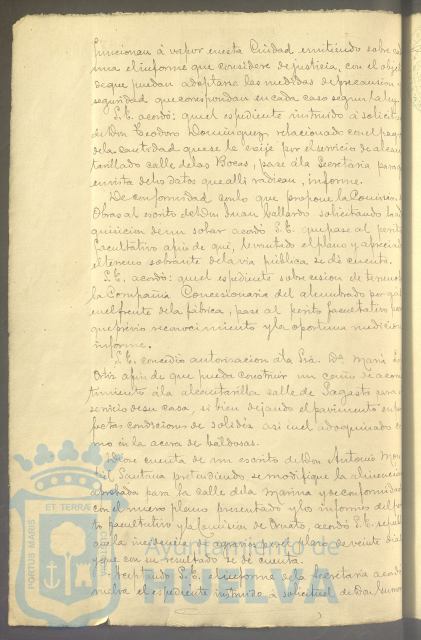 funcionan á vapor en esta Ciudad emitiendo sobre ca
una el informe que considere de justicia, con el obje
de que puedan adoptarse las medidas de precaucion
seguridad que correspondan en cada caso segun la ley.
S.E. acordó: que el espediente instruido á solicitu
de Don Teodoro Dominguez, relacionado con el pag
de la cantidad que se le exije por el servicio de alcan
tarillado calle de las Bocas, pase á la Secretaria para
en vista de los datos que alli radican, informe.
De conformidad con lo que propone la Comision
Obras al escrito de Don Juan Gallardo solicitando la
quisicion de un solar acordó S.E. que pase al perito
facultativo á fin de que, levantado el plano y aprecia
el terreno sobrante de la via pública se dé cuenta.
S.E. acordó: que el espediente sobre cesion de terreno
la Compañia Concesionaria del alumbrado por gas
en el frente de la fábrica, pase al perito facultativo para
que previo reconocimiento y la oportuna medicion
informe.
S.E. concedió autorizacion á la Sra. Dª Maria
Ortiz á fin de que pueda construir un caño de acome
timiento á la alcantarilla calle de Sagasta para
servicio de su casa, si bien dejando el pavimento en per
fectas condiciones de solidez asi en el adoquinado co
mo en la acera de baldosas.
Dióse cuenta de un escrito de Don Antonio Mon
Santana pretendiendo se modifique la alineacion
aprobada para la calle de la Marina y de conformidad
con el nuevo plano presentado y los informes del peri
to facultativo y la Comision de Ornato, acordó S.E.
de agravios en el plazo de veinte dias
y que con su resultado se dé cuenta.
Aceptando S.E. el informe de la Secretaria acordó
vuelva el espediente instruido á solicitud de Don
PORTUS MARIS
ET TERRAE
CUSTODIA
Ayuntamiento de
HUELVA